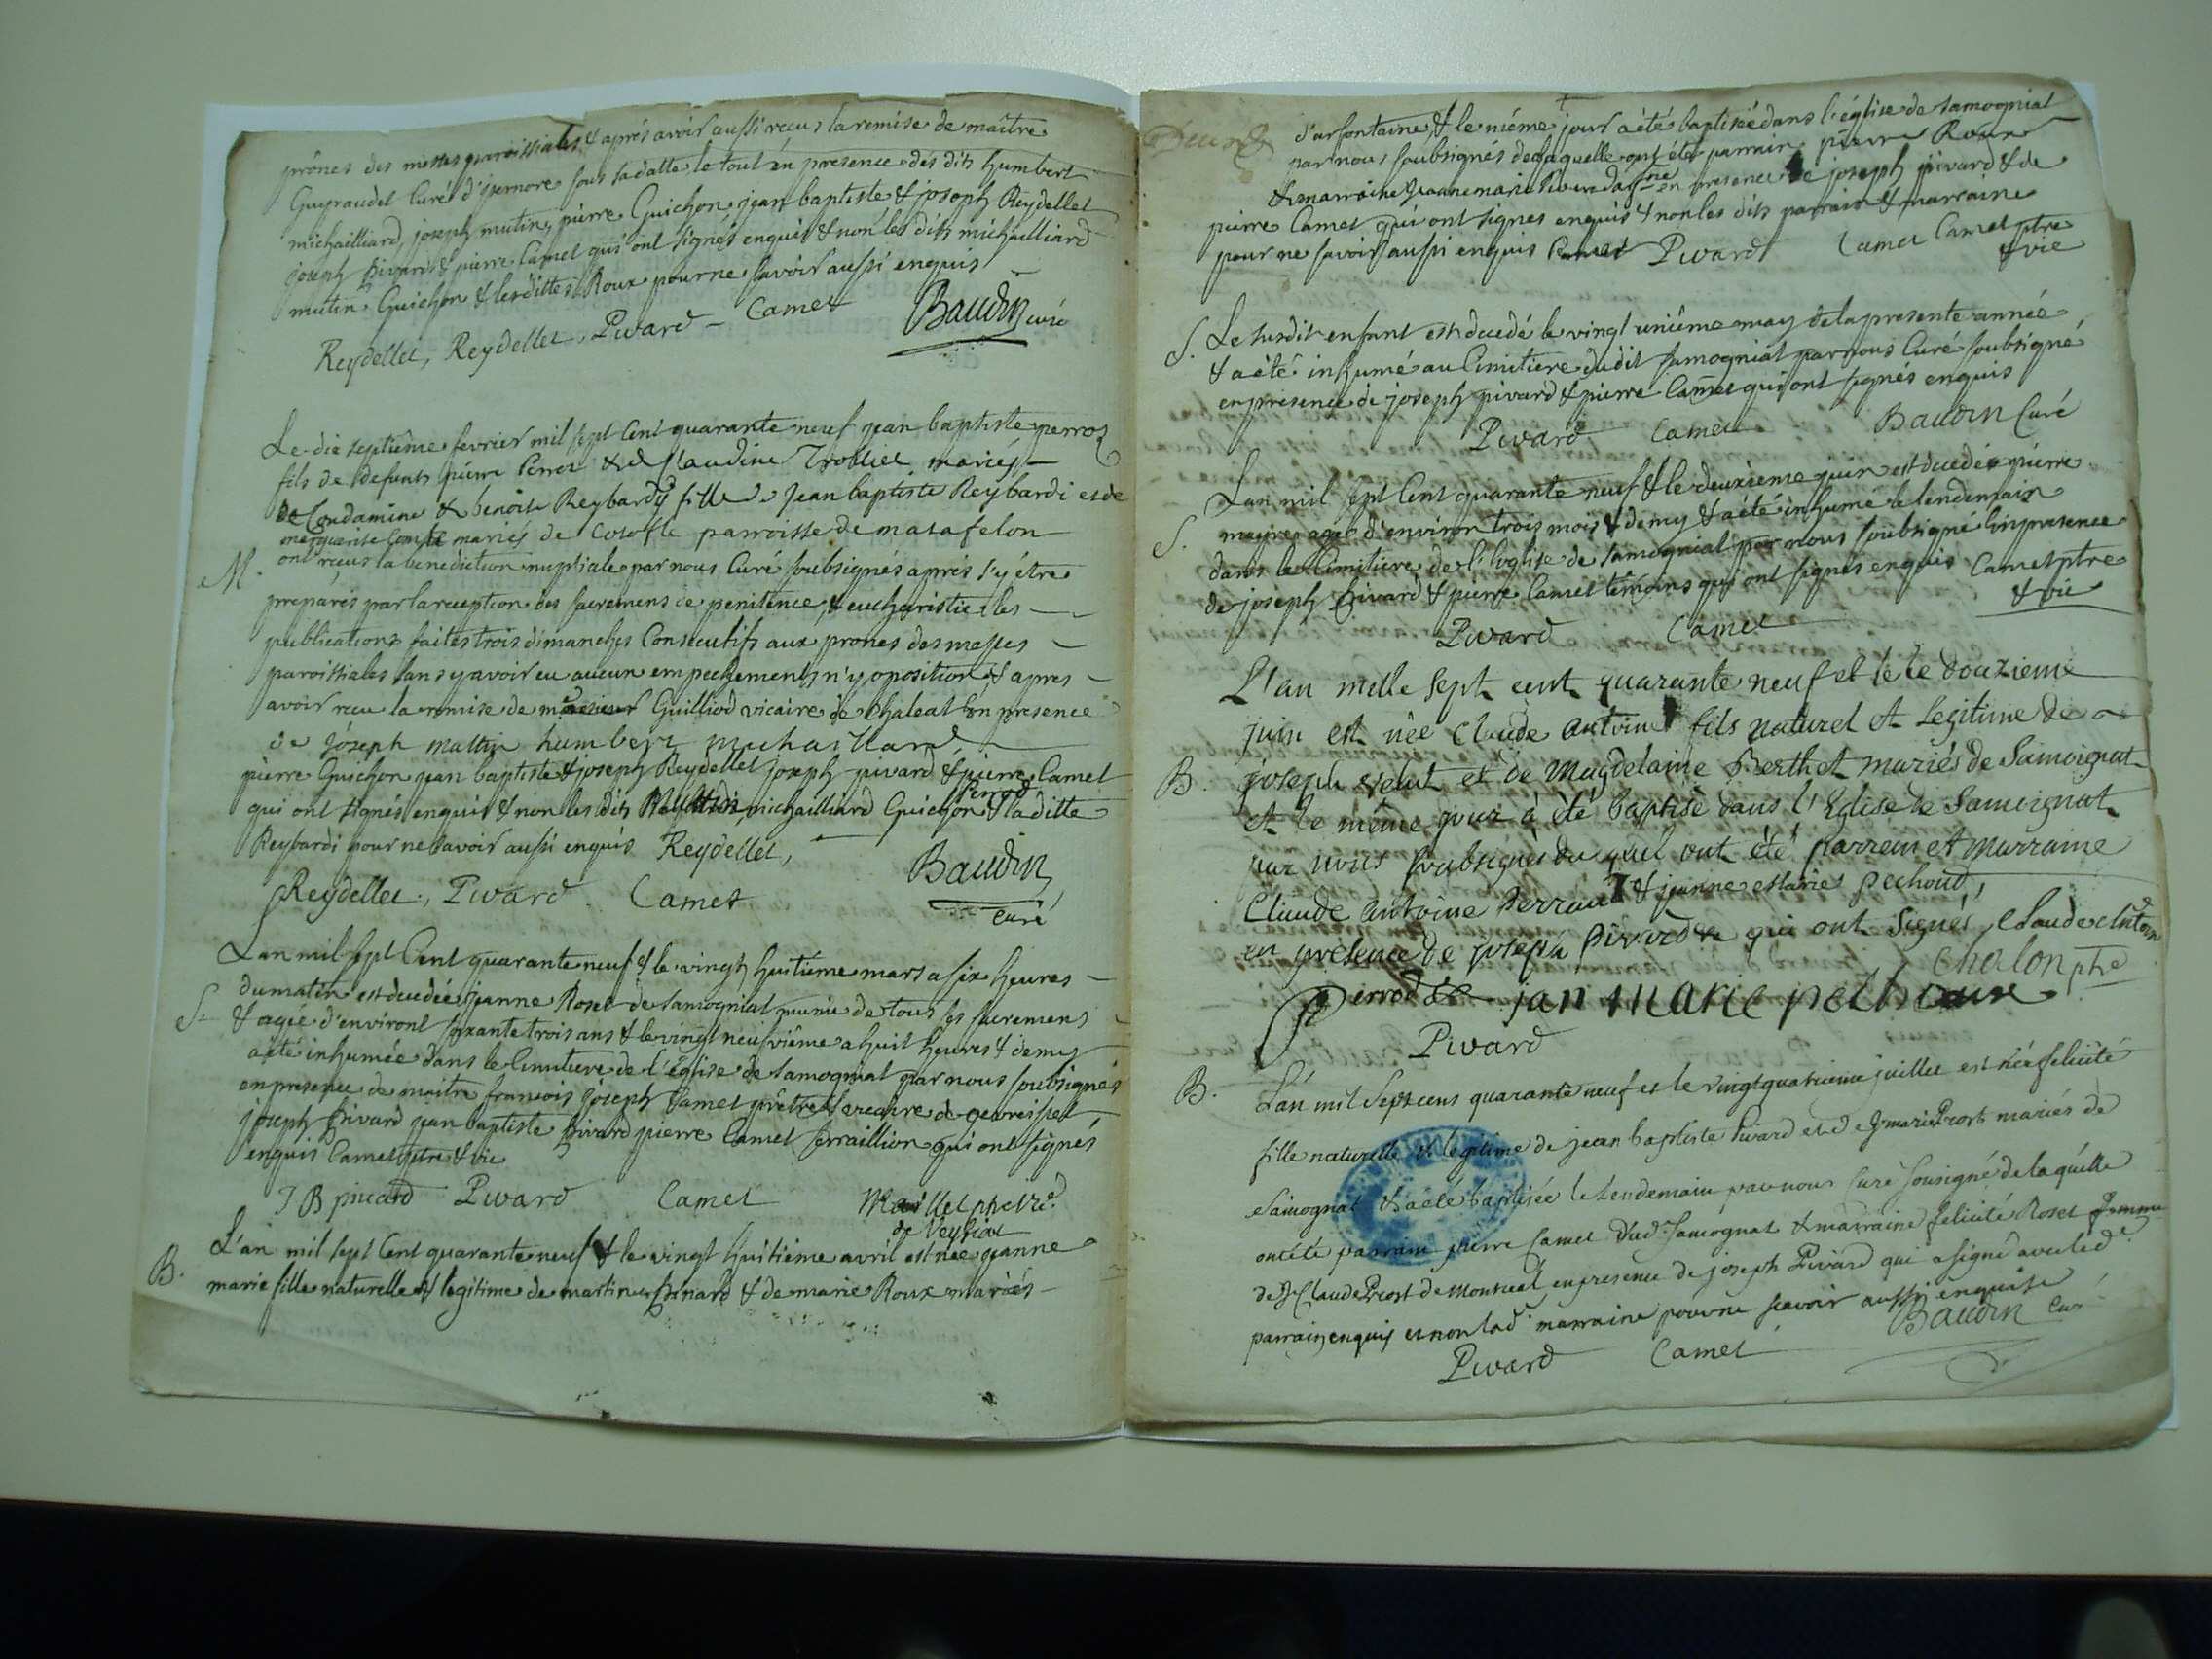 prônes des messes paroissiales, & aprés avoir aussi reçus la remise de maitre
Guyraudet Curé d'isernore sous sa datte le tout en presence des dits humbert
michailliard, joseph mutin, pierre Guichon, jean baptiste & joseph Reydellet
joseph pivard & pierre Camet qui ont signés enquis & non les dits michailliard
mutin Guichon & lesdittes Roux pour ne savoir aussi enquis
Reydellet, Reydellet, Pivard - Camet Baudin curé
Le dix septiême fevrier mil sept Cent quarante neuf jean baptiste perroz
fils de defunts pierre Perroz & de Claudine Trobliet mariés
de Condamine & benoite Reybardy fille de Jean baptiste Reybardi et de
marguerite Comte mariés de parroisse de matafelon
M. ont reçus la benediction nuptiale par nous Curé soubsignés aprés s'y être
preparés par la reception des sacremens de penitence, & eucharistie, les
publications faites trois dimanches Consecutifs aux prones des messes
paroissiales sans y avoir eu aucun empechements n'y oposition & apres
avoir recu la remise de Guilliod vicaire de Chaleat en presence
de Joseph humbert michaillard
pierre Guichon jean baptiste & joseph Reydellet joseph pivard & pierre Camet
Perrod
qui ont signés enquis & non les dits michailliard Guichon & la ditte
Reybardi pour ne savoir aussi enquis Reydellet,
Reydellet, Pivard Camet Baudin
curé
Lan mil sept Cent quarante neuf & le vingt huitiême mars a six heures
du matin est decedée jeanne Roset de Samogniat munie de tous les sacremens
S. & agée d'environt soixante trois ans & le vingt neufviême a huit heures & demy
a été inhumée dans le Cimitiere de l'église de Samogniat par nous soubsignés
en presence de maitre francois joseph Camet prêtre & vicaire de geovreisset
joseph pivard jean baptiste pivard pierre Camet qui ont signés
enquis Camet ptre & vic
J B pivard Pivard Camet Maillet
de Veyziat
L'an mil sept Cent quarante neuf & le vingt huitiéme avril est née jeanne
B. marie fille naturelle & legitime de martin & de marie Roux mariés
d'arfontaine, & le même jour a été baptisée dans l'église de Samogniat
par nous soubsignés de laquelle ont été parrain pierre Roux
& marraine jeanne marie en presence de joseph pivard & de
pierre Camet qui ont signés enquis & non les dits parrain & marraine
pour ne savoir aussi enquis Pivard Camet Camet ptre
& vic
S. Le susdit enfant est decedé le vingt uniême may de la presente année
& a été inhumé au Cimitiere dudit Samogniat par nous Curé soubsigné
en presence de joseph pivard & pierre Camet qui ont signés enquis
Pivard Camet Baudin Curé
Lan mil sept Cent quarante neuf & le deuxieme juin est decedé pierre
S. agé d'environ trois mois & demy & a été inhumé le lendemain
dans le Cimitiere de l'église de Samogniat par nous soubsigné en presence
de joseph pivard & pierre Camet temoins qui ont signés enquis Camet ptre
& vic
Pivard Camet
L'an melle sept cent quarante neuf et le le douzieme
juin est née Claude antoine fils naturel et Legitime de
B. joseph velut et de Magdelaine Berthet mariés de Samoignat
et le même jour à été baptisè dans l'Eglise de Samoignat
par nous soubsignés du quel ont été parrein et Marraine
Claude Antoine Perraud & jeanne Marie pechoud,
en présence de joseph Pivard qui ont signés,
Chalon ptre
Perrod jan marie
Pivard
B. L'an mil sept cens quarante neuf et le vingt quatrieme juillet est née felicité
fille naturelle & legitime de jean baptiste Pivard et de marie Prost mariés de
Samognat & a eté baptisée le lendemain par nous curé sousigné de laquelle
ont été parrain pierre Camet dud. Samognat & marraine felicité Roset femme
de Claude Prost de Montreal en presence de joseph Pivard qui a signé avec led.
parrain enquis et non lad. marraine pour ne scavoir aussi enquise
Pivard Camet Baudin Curé